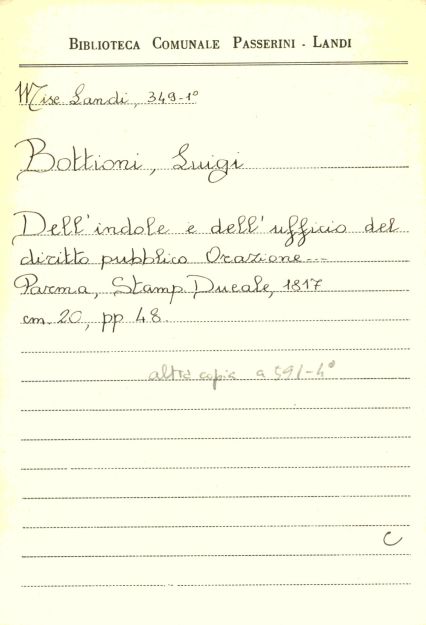 BIBLIOTECA COMUNALE PASSERINI - LANDI
Misc Landi, 349-1°
Bottioni, Luigi
Dell'indole e dell'ufficio del
diritto pubblico Orazione...
Parma, Stamp. Ducale, 1817
cm. 20, pp 48.
altra copia a 591-4°
C